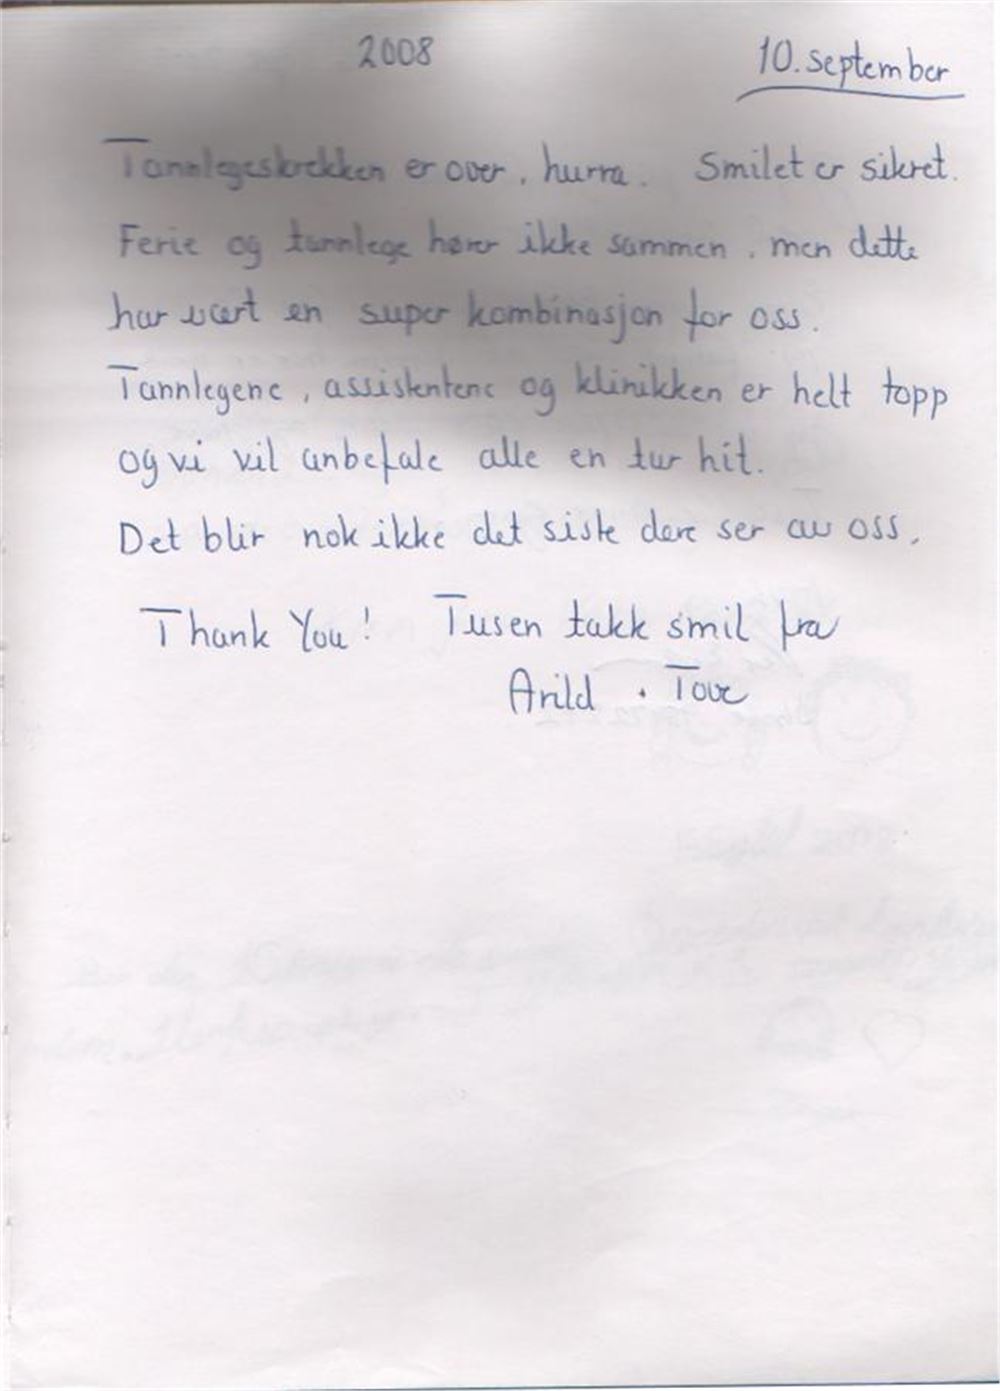 2008
10. september
Tannlegeskrekken er over, hurra. Smilet er sikret.
Ferie og tannlege hører ikke sammen, men dette
har vært en super kombinasjon for oss.
Tannlegene, assistentene og klinikken er helt topp
og vi vil anbefale alle en tur hit.
Det blir nok ikke det siste dere ser av oss.
Thank You! Tusen takk smil fra
Arild . Tove